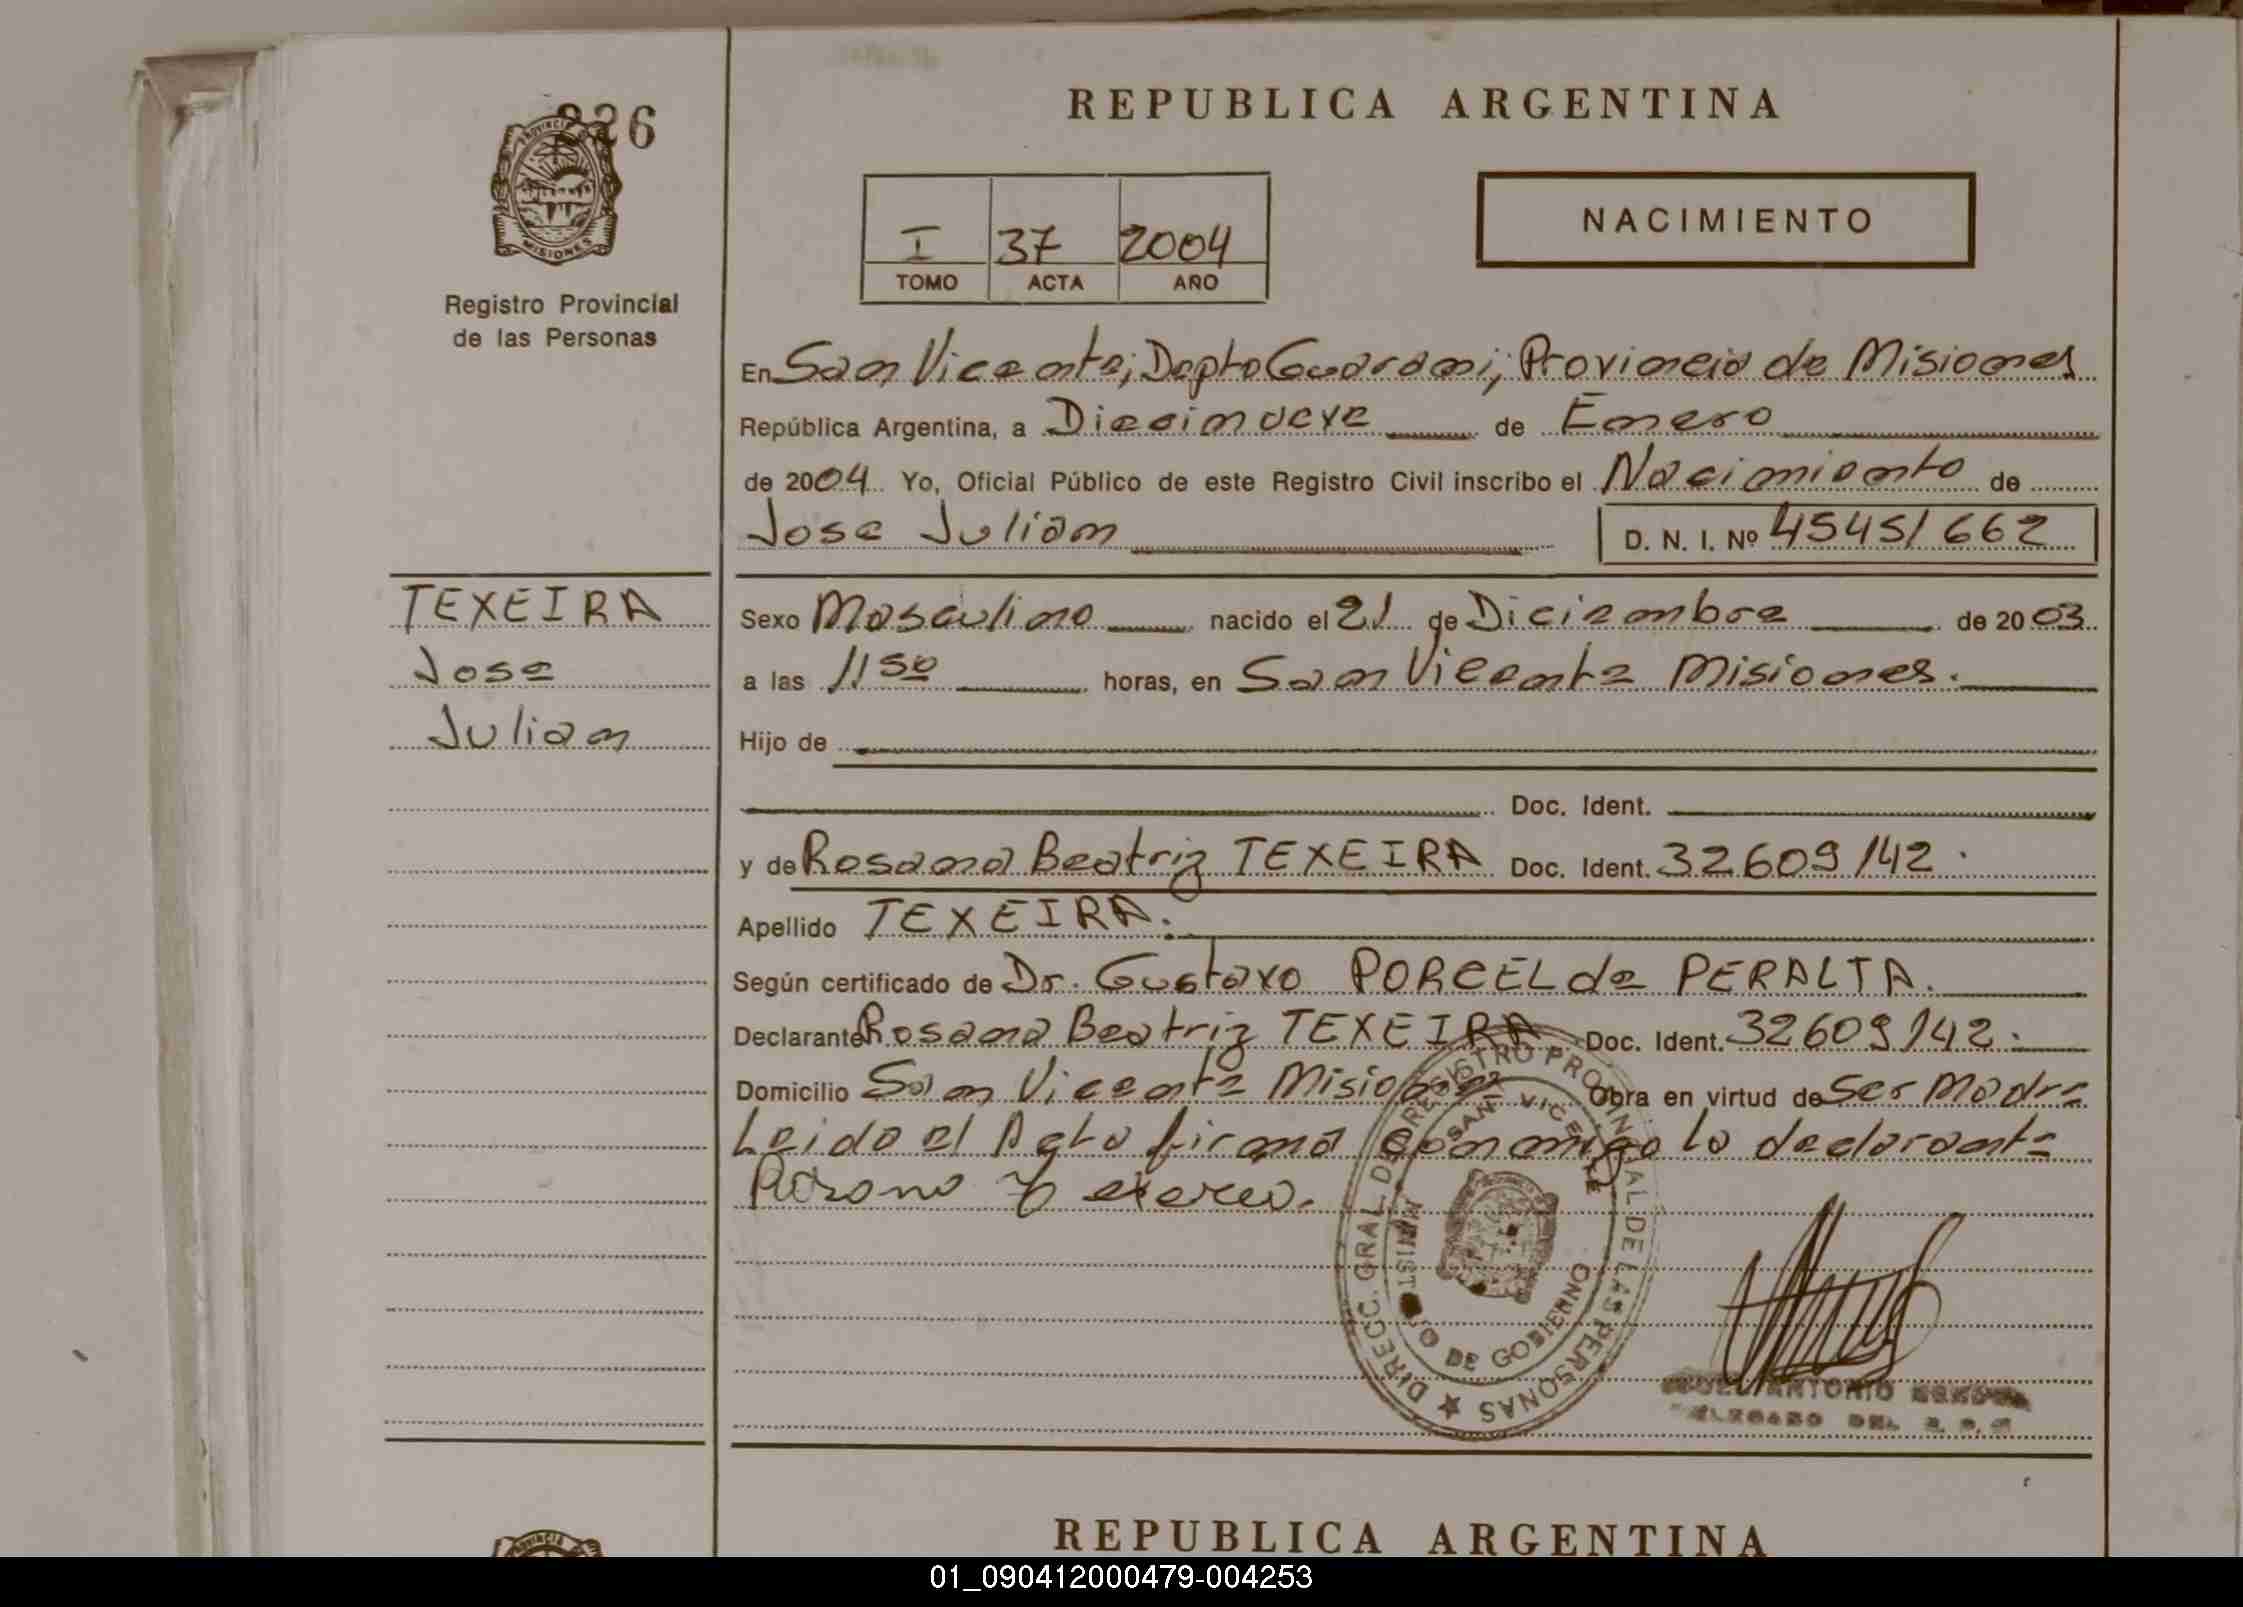 326
PROVINCIA
MISIONES
Registro Provincial
de las Personas
TEXEIRA
Jose
Julian
REPUBLICA ARGENTINA
I 37 2004
TOMO ACTA AÑO
NACIMIENTO
En San Vicente; Depto Guarani; Provincia de Misiones
República Argentina, a Diecinueve de Enero
de 2004 Yo, Oficial Público de este Registro Civil inscribo el Nacimiento de
Jose Julian D. N. I. Nº 45451662
Sexo Masculino nacido el 21 de Diciembre de 2003
a las 11 50 horas, en San Vicente Misiones.
Hijo de
Doc. Ident.
y de Rosana Beatriz TEXEIRA Doc. Ident. 32609142.
Apellido TEXEIRA.
Según certificado de Dr. Gustavo PORCEL de PERALTA.
Declarante Rosana Beatriz TEXEIRA Doc. Ident. 32609142.
Domicilio San Vicente Misiones Obra en virtud de Ser Madre
Leido el Acta firma conmigo la declarante
DIRECC. GRAL. DEL REGISTRO PROVINCIAL DE LAS PERSONAS
SAN VICENTE
MINISTERIO DE GOBIERNO
ANTONIO
DELEGADO DEL R. P. P.
REPUBLICA ARGENTINA
01_090412000479-004253